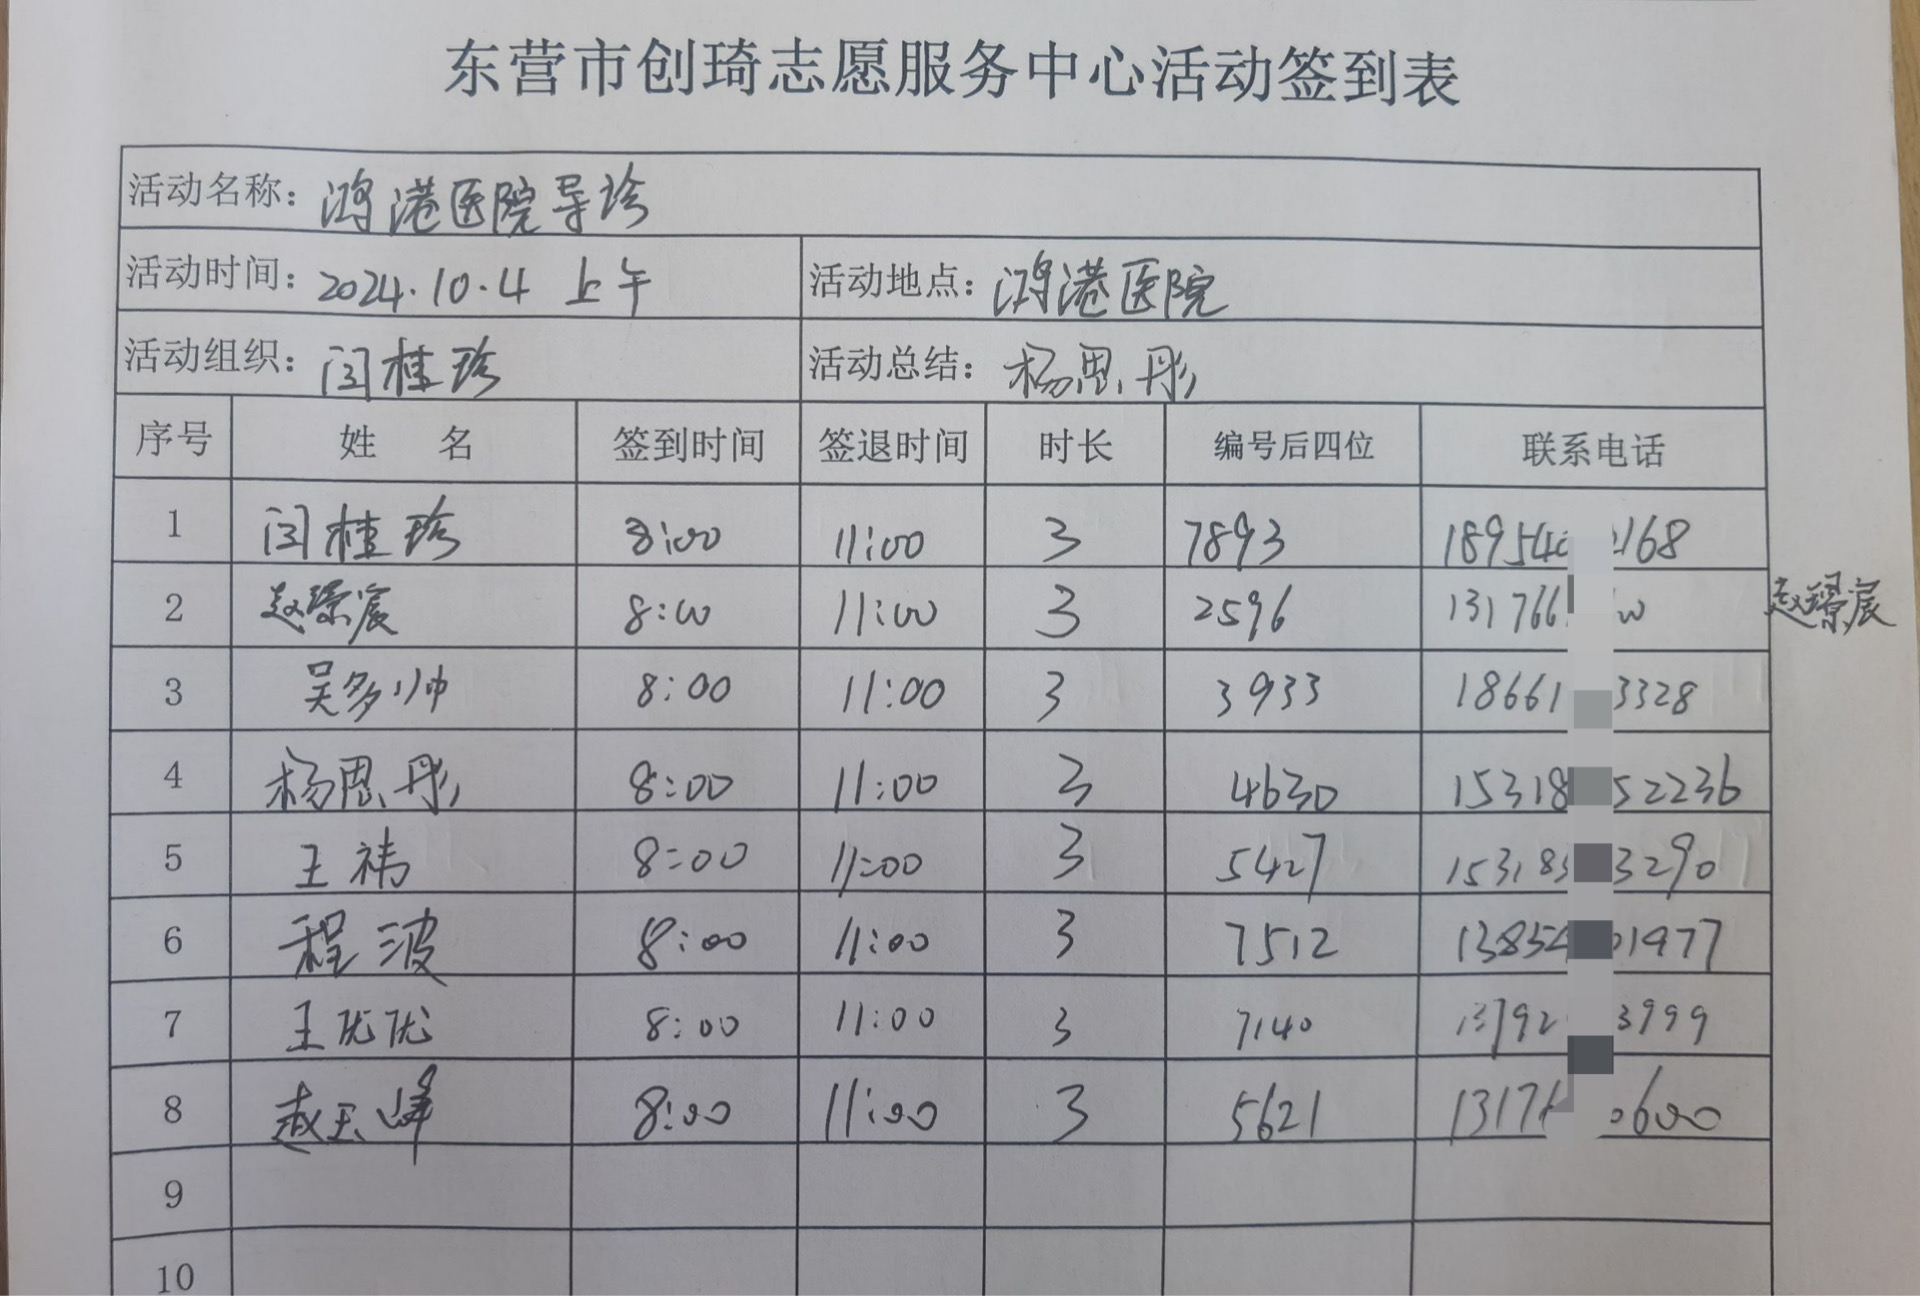 东营市创琦志愿服务中心活动签到表
活动名称：鸿港医院导诊
活动时间：2024.10.4 上午 活动地点：鸿港医院
活动组织：闫桂珍 活动总结：杨思彤
序号 姓名 签到时间 签退时间 时长 编号后四位 联系电话
1 闫桂珍 8:00 11:00 3 7893 18954 168
2 赵璟宸 8:00 11:00 3 2596 131766 赵璟宸
3 吴多帅 8:00 11:00 3 3933 18661 3328
4 杨思彤 8:00 11:00 3 4630 15318 52236
5 王祎 8:00 11:00 3 5427 15318 3290
6 程波 8:00 11:00 3 7512 13854 01977
7 王优优 8:00 11:00 3 7140 13792 3999
8 赵玉峰 8:00 11:00 3 5621 1317 0600
9
10